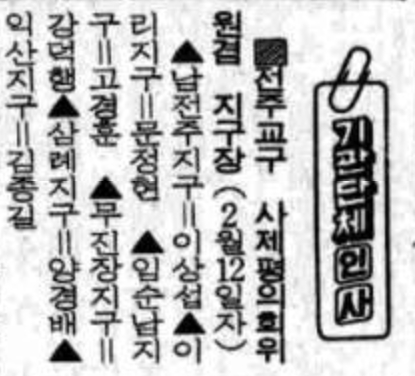 기관단체인사
▨전주교구 사제평의회위
원겸 지구장(2월12일자)
▲남전주지구=이상섭▲이
리지구=문정현 ▲임순남지
구=고경훈 ▲무진장지구=
강덕행▲삼례지구=양경배▲
익산지구=김종길